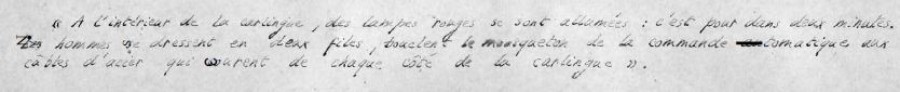 « A l'intérieur de la carlingue, des lampes rouges se sont allumées : c'est pour dans deux minutes.
Les hommes se dressent en deux files, bouclent le mousqueton de la commande automatique aux
câbles d'acier qui courent de chaque côté de la carlingue ».